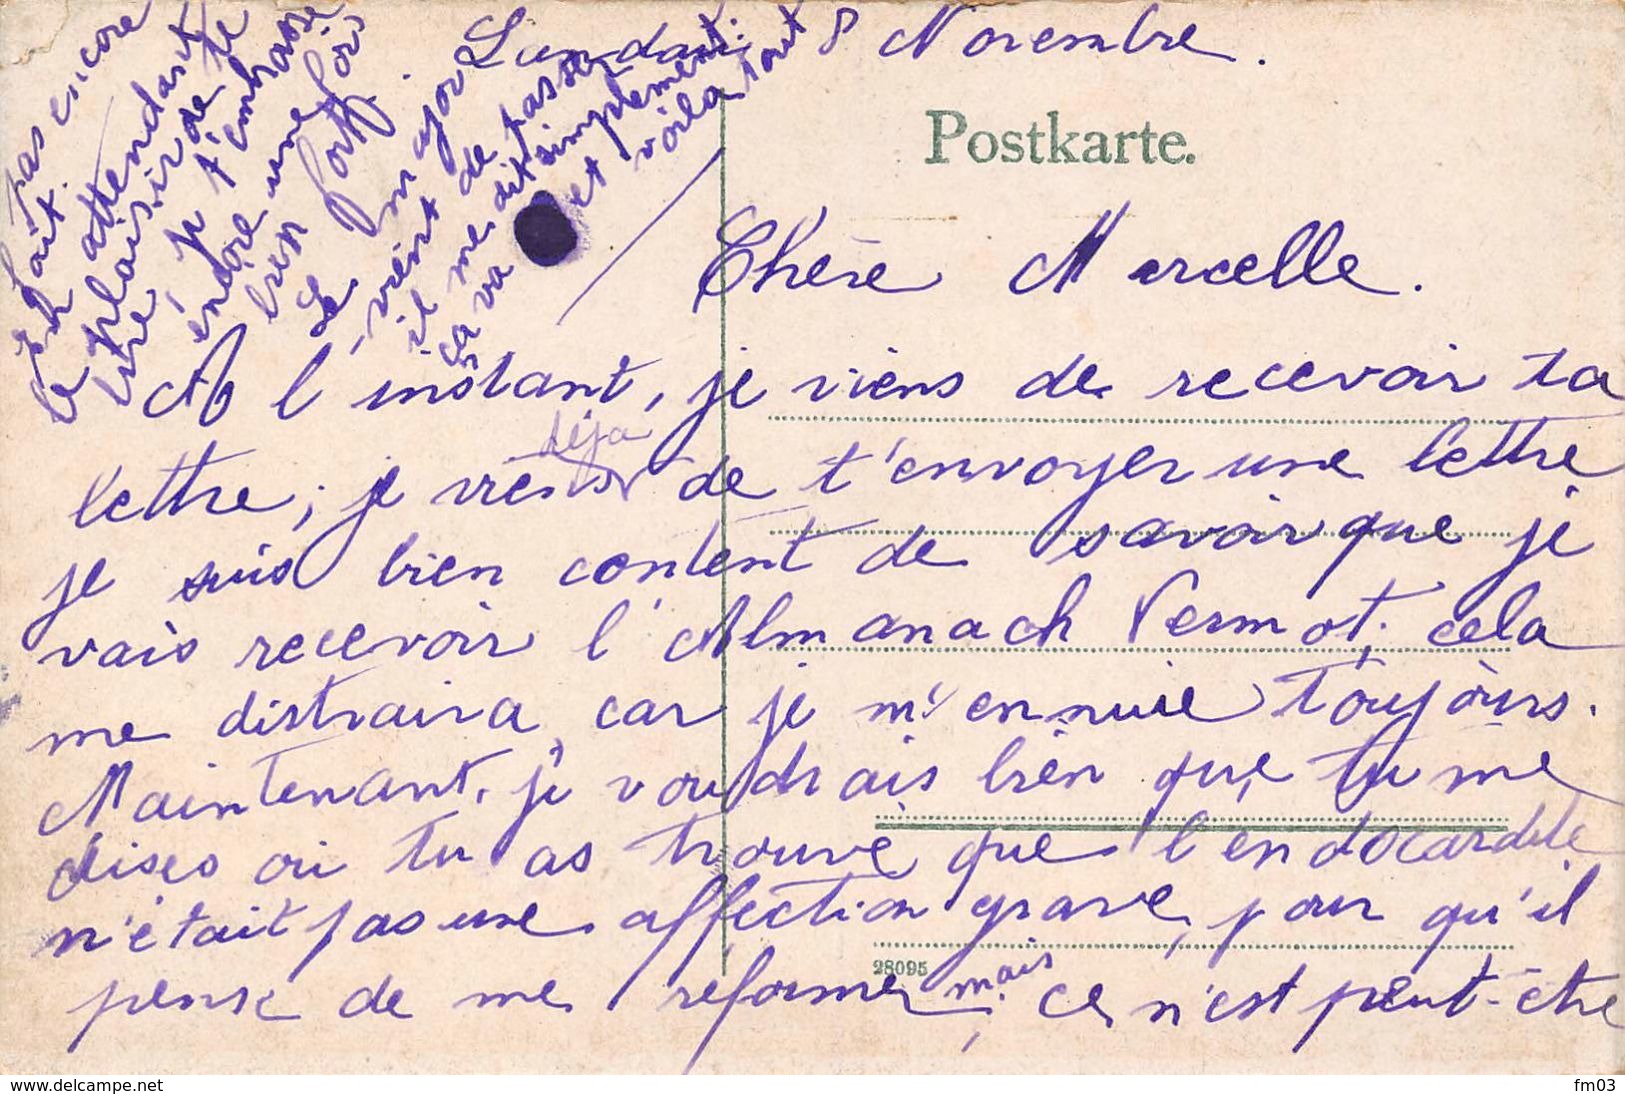 Landau 8 Novembre.
Postkarte.
Chère Marcelle.
A l'instant, je viens de recevoir ta
lettre, je viens déjà de t'envoyer une lettre
je suis bien content de savoir que je
vais recevoir l'Almanach Vermot, cela
me distraira car je m'ennuie toujours.
Maintenant, je voudrais bien que tu me
dises où tu as trouvé que l'endocardite
n'était pas une affection grave, pour qu'il
pense de me réformer, mais ce n'est peut-être
pas encore
fait.
En attendant
le plaisir de te
lire, je t'embrasse
encore une fois
bien fort.
Le major
vient de passer
il me dit simplement
ça va et voilà tout
28095
www.delcampe.net
fm03